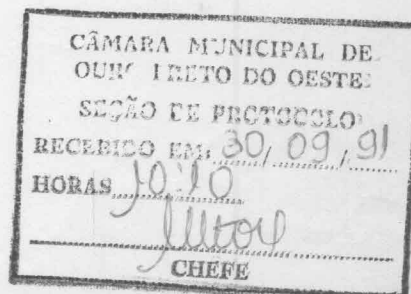 CÂMARA MUNICIPAL DE
OURO PRETO DO OESTE
SEÇÃO DE PROTOCOLO
RECEBIDO EM: 30/09/91
HORAS 10:10
CHEFE